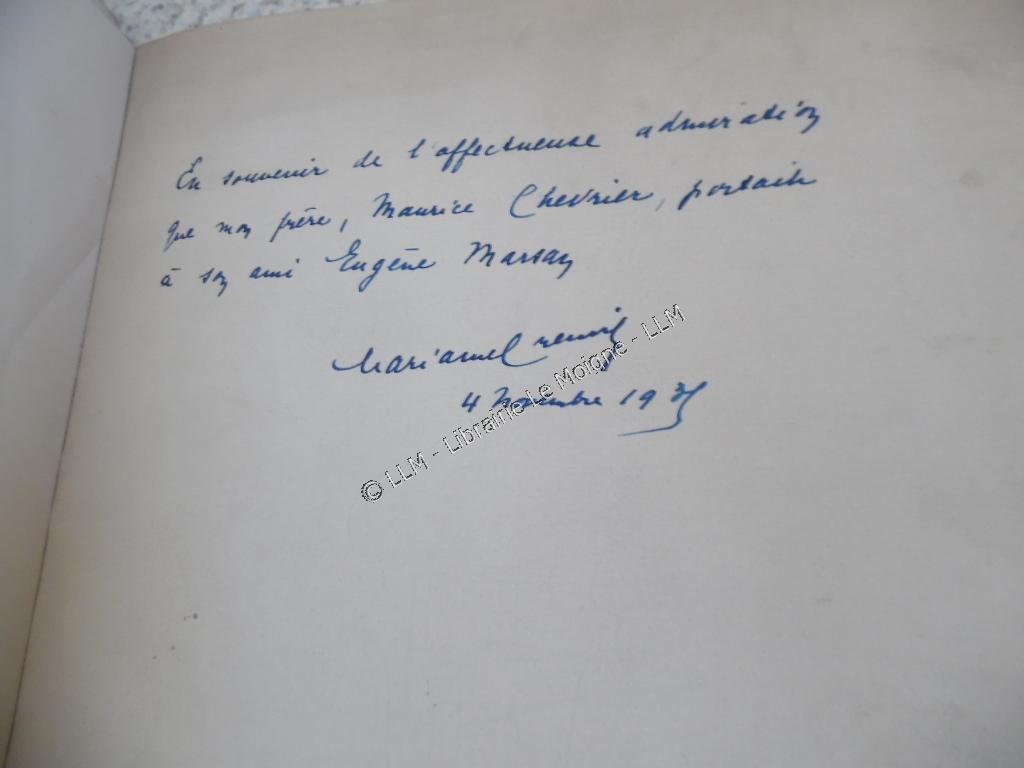 En souvenir de l'affectueuse admiration
que mon frère, Maurice Chevrier, portait
à son ami Eugène Marsan
4 Novembre 19
© LLM - Librairie Le Moigne - LLM